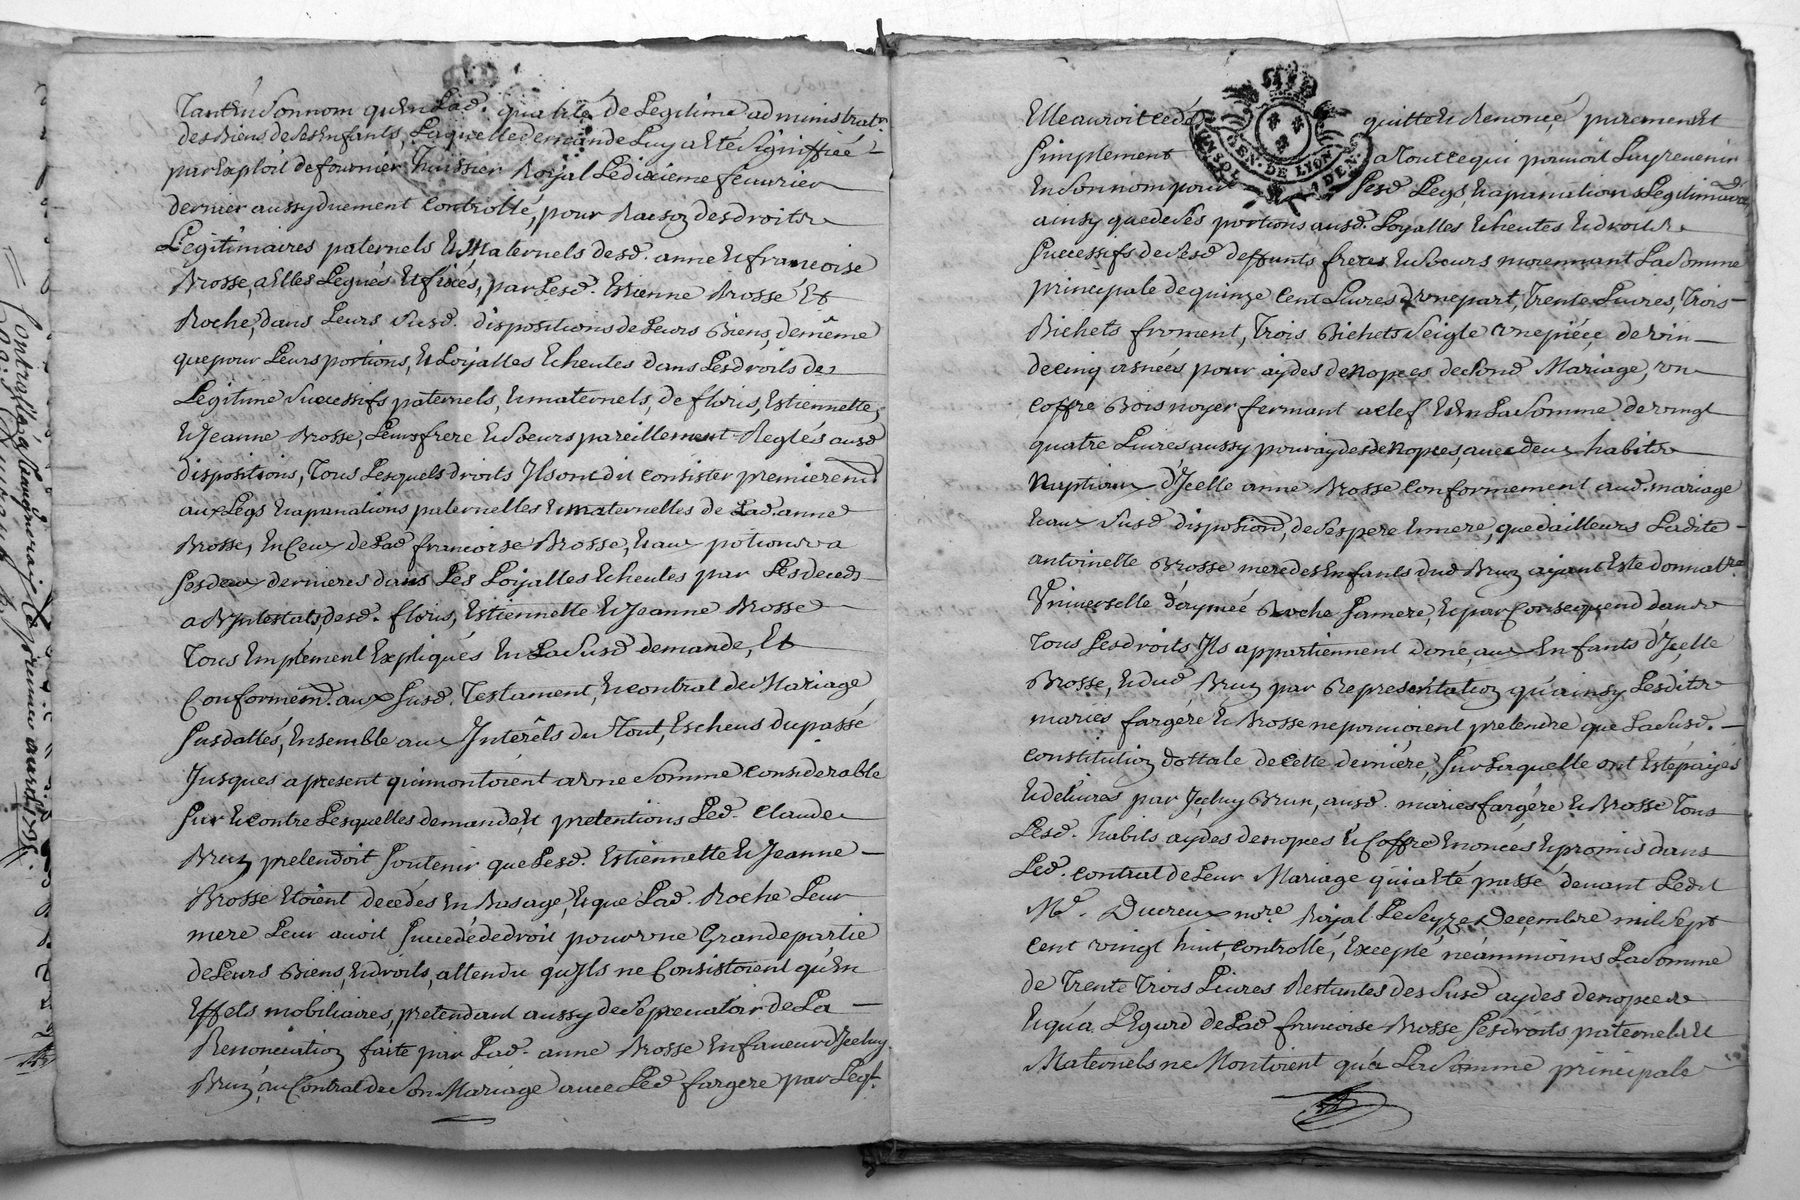 Tant En Son nom qu'En Lad. qualité de Legitime administratr.
des Biens de Ses Enfants, Laquelle demande Luy a Eté Signiffiée
par Exploit de fournier huissier Royal Le dixieme feuvrier
dernier aussy duement Controllé, pour Raison des droits
Legitimaires paternels Et Maternels desd. anne Et francoise
Brosse, a Elles Legués Et fixés, par Lesd. Estienne Brosse Et
Roche, dans Leurs Susd. dispositions de Leurs Biens, de même
que pour Leurs portions, Et Loyalles Echeutes dans Les droits de
Legitime Successifs paternels, Et maternels, de floris, Estiennette,
Et Jeanne Brosse, Leurs frere Et Soeurs pareillement Reglés ausd.
dispositions, Tous Lesquels droits Ils ont dit Consister premierem.
aux Legs Et apanations paternelles Et maternelles de Lad. anne
Brosse, En Ceux de Lad. francoise Brosse, Et aux potions
des deux dernieres dans Les Loyalles Echeutes par Les deceds
ab Intestats, desd. floris, Estiennette Et Jeanne Brosse
Tous Emplement Expliqués En La Susd. demande, Et
Conformem. aux Susd. Testament, Et contrat de Mariage
Susdattés, Ensemble aux Interêts du Tout, Escheus du passé
Jusques a present qui montoient a vne Somme Considerable
Sur Et contre Lesquelles demande, Et pretentions Led. Claude
Brun pretendoit Soutenir que Lesd. Estiennette Et Jeanne
Brosse Etoient decédés En bas age, Et que Lad. Roche Leur
mere Leur auoit Succedé de droit pour vne Grande partie
de Leurs Biens, Et droits, attendu qu'Ils ne Consistoient qu'En
Effets mobiliaires, pretendant aussy de Se preualoir de La
Renonciation faite par Lad. anne Brosse En faueur d'Jceluy
Brun, au Contrat de Son Mariage auec Led. fargere par Leql.
Elle auroit cedé quitté Et Renoncé purement Et
Simplement a Tout ce qui pouuoit Luy reuenir
En Son nom pour Sesd. Legs, Et apanations Legitimaires
ainsy que de Ses portions ausd. Loyalles Echeutes Et droits
Successifs de Sesd. deffunts freres Et Soeurs moyennant La Somme
principale de quinze Cent Liures d'vne part, Trente Liures, Trois
Bichets froment, Trois Bichets Seigle vne piéce de vin
de cinq asnées pour aydes de nopces de Sond. Mariage, vn
Coffre Bois noyer fermant a clef Et En La Somme de vingt
quatre Liures aussy pour aydes de nopces, auec deux habits
Nuptiaux d'Jcelle anne Brosse Conformement aud. mariage
Et aux Susd. disposions, de Ses pere Et mere, que d'ailleurs Ladite
antoinette Brosse mere des Enfants dud. Brun ajant Eté donnatre
Vniverselle d'aymée Roche Sa mere, Et par Consequend, dans
Tous Ses droits, Ils appartiennent donc, aux Enfants d'Jcelle
Brosse, Et dud. Brun par Representation qu'ainsy Lesdits
mariés fargére Et Brosse ne pouuoient pretendre que La Susd.
constitution dottale de Cette derniére, Sur Laquelle ont Eté payés
Et deliurés par Jceluy Brun, ausd. mariés fargére Et Brosse Tous
Lesd. habits aydes de nopces Et Coffre Enoncés Et promis dans
Led. contrat de Leur Mariage qui a Eté passé deuant Ledit
Me. Ducreux nore. Royal Le Seyze decembre mil Sept
cent vingt huit, Controllé, Excepté néammoins La Somme
de Trente Trois Liures Restantes des Susd. aydes de nopces
Et qu'a L'Egard de Lad. francoise Brosse Ses droits paternels Et
Maternels ne Montoient qu'a La Somme principale
GEN. DE LYON
Controllé a Le premier auril 1735.